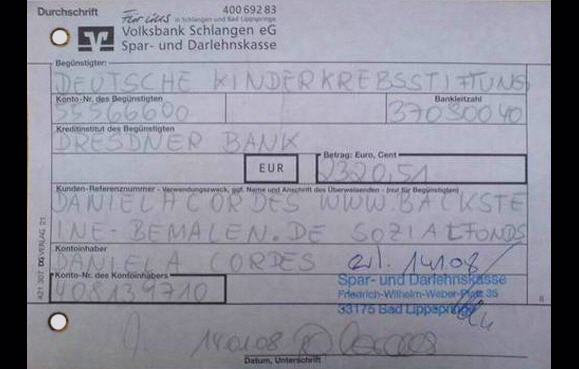 Durchschrift
Für uns in Schlangen und Bad Lippspringe
400 692 83
Volksbank Schlangen eG
Spar- und Darlehnskasse
Begünstigter:
DEUTSCHE KINDERKREBSSTIFTUNG
Konto-Nr. des Begünstigten
Bankleitzahl
55566600
37080040
Kreditinstitut des Begünstigten
DRESDNER BANK
EUR
Betrag: Euro, Cent
2320,51
Kunden-Referenznummer - Verwendungszweck, ggf. Name und Anschrift des Überweisenden - (nur für Begünstigten)
DANIELA CORDES WWW.BACKSTE
INE-BEMALEN.DE SOZIALFONDS
Kontoinhaber
DANIELA CORDES
erl. 14.01.08
Konto-Nr. des Kontoinhabers
408139710
Spar- und Darlehnskasse
Friedrich-Wilhelm-Weber-Platz 35
33175 Bad Lippspringe
421 307 DG VERLAG 21
14.01.08
Datum, Unterschrift